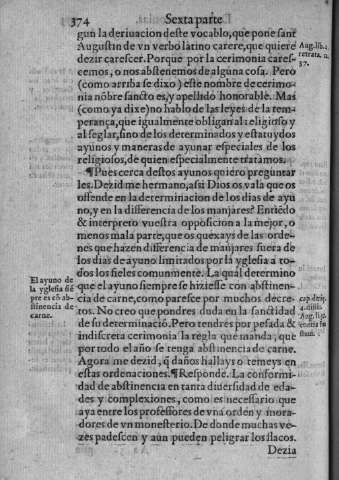 374 Sexta parte
gun la deriuacion deste vocablo, que pone sant
Augustin de vn verbo latino carere, que quiere
dezir carescer. Porque por la cerimonia cares-
cemos, o nos abstenemos de alguna cosa. Pero
(como arriba se dixo) este nombre de cerimo-
nia nõbre sancto es, y apellido honorable. Mas
(como ya dixe) no hablo de las leyes de la tem-
perança, que igualmente obligan al religioso y
al seglar, sino de los determinados y estatuydos
ayunos y maneras de ayunar especiales de los
religiosos, de quien especialmente tratamos.
¶ Pues cerca destos ayunos quiero preguntar
les. Dezid me hermano, assi Dios os vala que os
offende en la determinacion de los dias de ayu
no, y en la differencia de los manjares? Entiẽdo
& interpreto vuestra opposicion a la mejor, o
menos mala parte, que os quexays de las orde-
nes que hazen differencia de manjares fuera de
los dias de ayuno limitados por la yglesia a to-
dos los fieles comunmente. La qual determino
que el ayuno siempre se hiziesse con abstinen-
cia de carne, como paresce por muchos decre-
tos. No creo que pondres duda en la sanctidad
de su determinació. Pero tendrés por pesada &
indiscreta cerimonia la regla que manda, que
por todo el año se tenga abstinencia de carne.
Agora me dezid, q̃ daños hallays o temeys en
estas ordenaciones. ¶ Responde. La conformi-
dad de abstinencia en tanta diuersidad de eda-
des y complexiones, como es necessario que
aya entre los professores de vna orden y mora-
dores de vn monesterio. De donde muchas ve-
zes padescen y aun pueden peligrar los flacos.
Dezia
Aug. lib. 2
retrata. c.
37.
El ayuno de
la yglesia siẽ
pre es cõ abs-
tinencia de
carne.
4. distin.